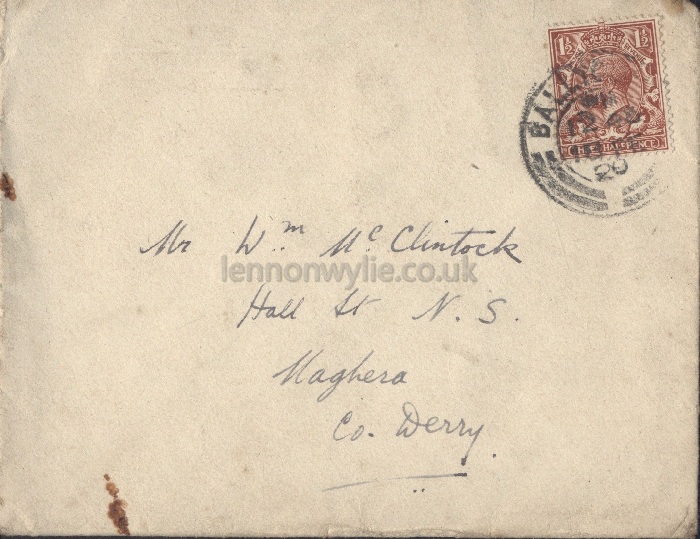 1½ 1½
Mr Wm McClintock
lennonwylie.co.uk
Hall St N. S.
Maghera
Co. Derry